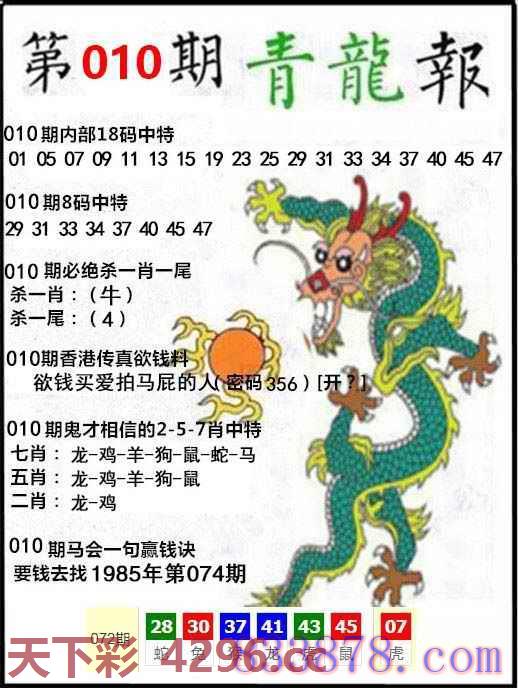 第010期青龍報
010期内部18码中特
01 05 07 09 11 13 15 19 23 25 29 31 33 34 37 40 45 47
010期8码中特
29 31 33 34 37 40 45 47
010期必绝杀一肖一尾
杀一肖：（牛）
杀一尾：（4）
010期香港传真欲钱料
欲钱买爱拍马屁的人（密码356）[开？]
010期鬼才相信的2-5-7肖中特
七肖：龙-鸡-羊-狗-鼠-蛇-马
五肖：龙-鸡-羊-狗-鼠
二肖：龙-鸡
010期马会一句赢钱诀
要钱去找1985年第074期
072期 28 30 37 41 43 45 07
蛇 兔 猴 龙 虎 鼠 虎
天下彩 4296.cc
3878.com